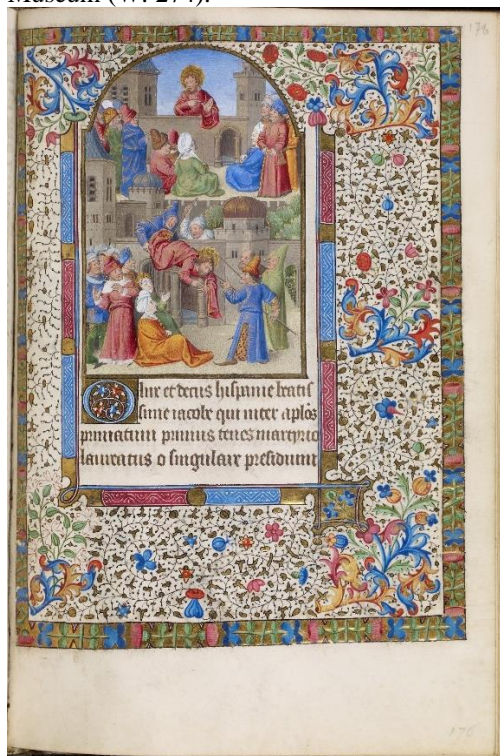 Museum (W. 274).
176
O lux et decus hispanie beatis
sime iacobe qui inter aplōs
primatum primus tenes martyrio
laureatus o singulare presidium
176